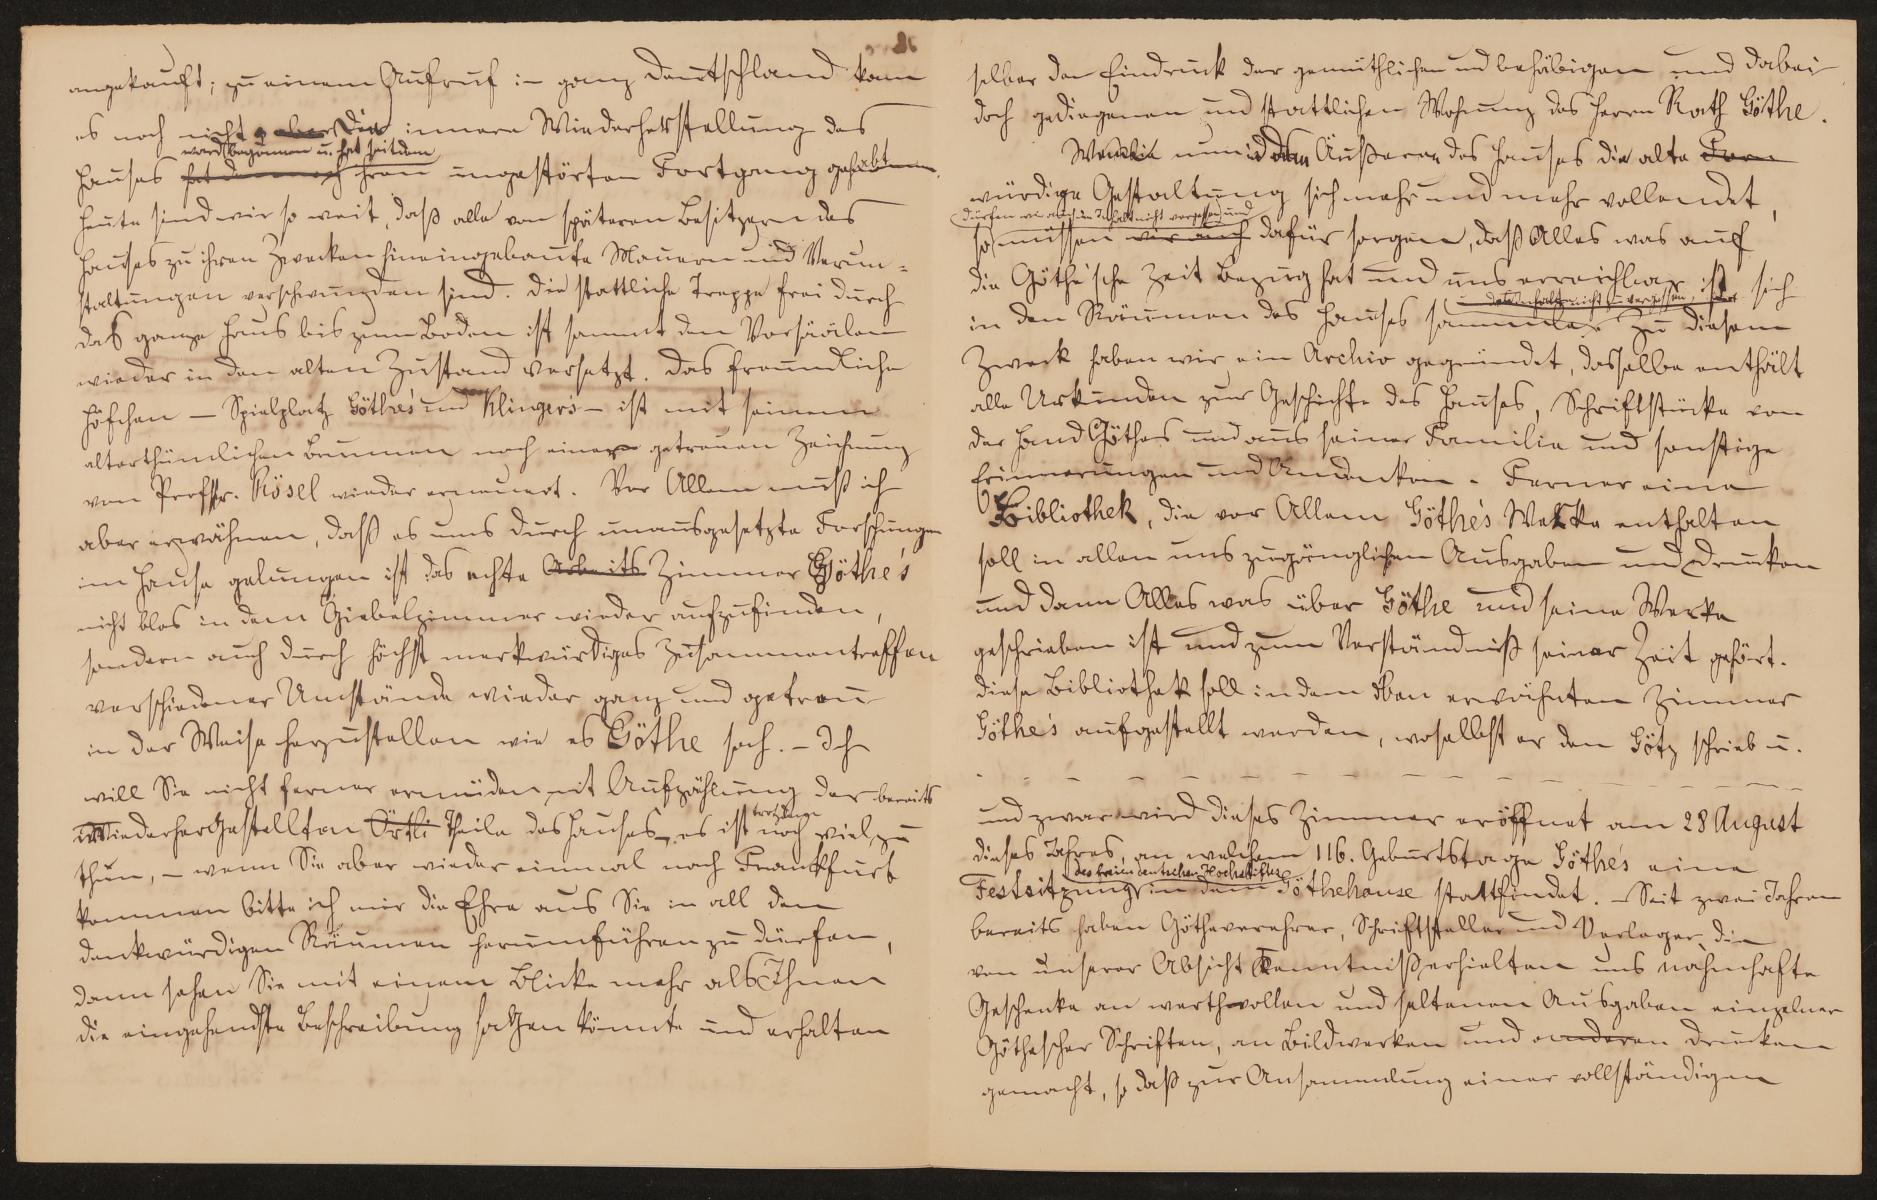 angekauft; zu einem Aufruf in ganz Deutschland kam
es noch nicht, aber die innere Wiederherstellung des
ward begonnen u. hat seitdem
Hauses hat demnach ihren ungestörten Fortgang gehabt
Heute sind wir so weit, daß alle von späteren Besitzern des
Hauses zu ihren Zwecken hineingebaute Mauern und Verun-
staltungen verschwunden sind. Die stattliche Treppe frei durch
das ganze Haus bis zum Boden ist sammt den Vorsäälen
wieder in den alten Zustand versetzt. Das freundliche
Höfchen – Spielplatz Göthe's und Klinger's – ist mit seinem
alterthümlichen Brunnen nach einer getreuen Zeichnung
von Profssr. Rösel wieder erneuert. Vor Allem muß ich
aber erwähnen, daß es uns durch unausgesetzte Forschungen
im Hause gelungen ist das echte Arbeits Zimmer Göthe's
nicht blos in dem Giebelzimmer wieder aufzufinden,
sondern auch durch höchst merkwürdiges Zusammentreffen
verschiedener Umstände wieder ganz und getreu
in der Weise herzustellen wie es Göthe sah. – Ich
will Sie nicht ferner ermüden mit Aufzählung der bereits
wiederhergestellten Örtli Theile des Hauses, es ist noch viel zu
thun, – wenn Sie aber wieder einmal nach Frankfurt
kommen bitte ich mir die Ehre aus Sie in all den
denkwürdigen Räumen herumführen zu dürfen,
dann sehen Sie mit einem Blicke mehr als Ihnen
die eingehendste Beschreibung sagen könnte und erhalten
selber den Eindruck der gemüthlichen und behäbigen und dabei
doch gediegenen und stattlichen Wohnung des Herrn Rath Göthe.
nun in dem Äußeren des Hauses die alte
würdige Gestaltung sich mehr und mehr vollendet,
dürfen wir auch den Inhalt nicht vergessen und
so müssen wir auch dafür sorgen, daß Alles was auf
die Göthe'sche Zeit Bezug hat und uns erreichbar ist sich
den Inhalt nicht zu vergessen,
in den Räumen des Hauses sammle. Zu diesem
Zweck haben wir ein Archiv gegründet, dasselbe enthält
alle Urkunden zur Geschichte des Hauses, Schriftstücke von
der Hand Göthes und aus seiner Familie und sonstige
Erinnerungen und Andenken. Ferner eine
Bibliothek, die vor Allem Göthe's Werke enthalten
soll in allen uns zugänglichen Ausgaben und Drucken
und dann Alles was über Göthe und seine Werke
geschrieben ist und zum Verständniß seiner Zeit gehört.
Diese Bibliothek soll in dem eben erwähnten Zimmer
Göthe's aufgestellt werden, woselbst er den Götz schrieb u.
– – – – – – – – – – – – – – –
und zwar wird dieses Zimmer eröffnet am 28 August
dieses Jahres, an welchem 116. Geburtstage Göthe's eine
des freien deutschen Hochstiftes
Festsitzung in dem Göthehause stattfindet. – Seit zwei Jahren
bereits haben Götheverehrer, Schriftsteller und Verleger, die
von unserer Absicht Kenntniß erhielten uns nahmhafte
Geschenke an werthvollen und seltenen Ausgaben einzelner
Göthescher Schriften, an Bildwerken und anderen Drucken
gemacht, so daß zur Ansammlung einer vollständigen